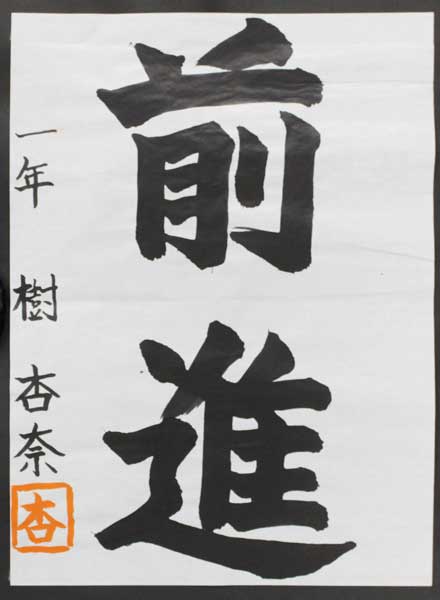 前進
一年 樹 杏奈
杏